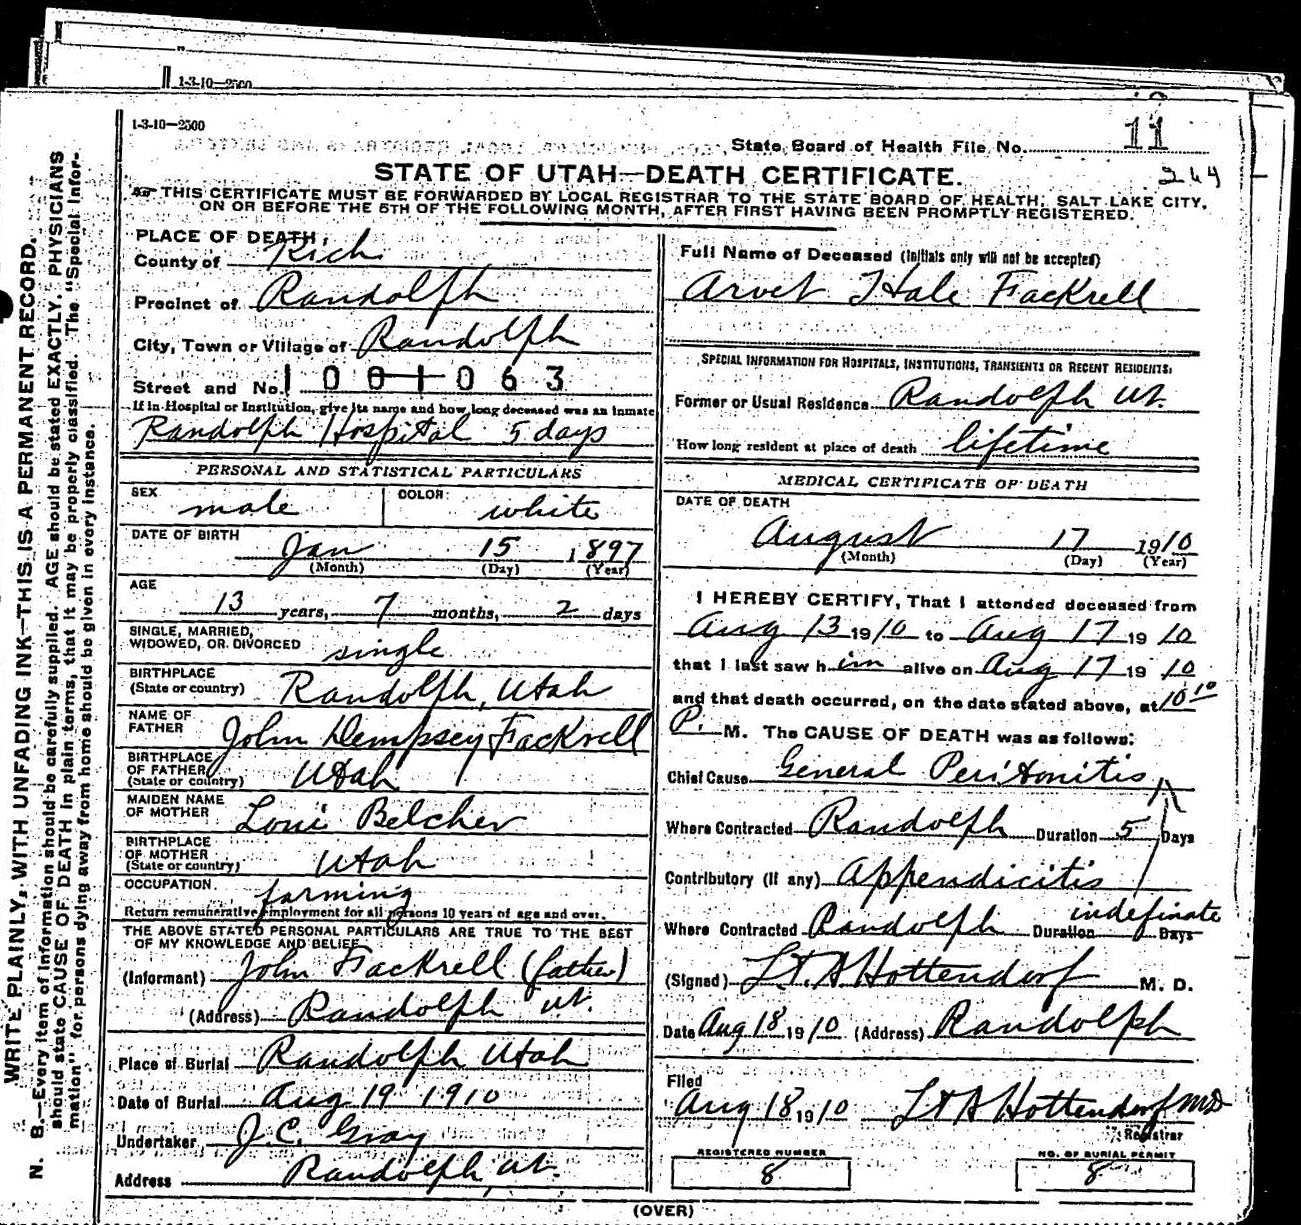 1-3-10—2500
1-3-10—2500
11
State Board of Health File No.
264
STATE OF UTAH—DEATH CERTIFICATE.
THIS CERTIFICATE MUST BE FORWARDED BY LOCAL REGISTRAR TO THE STATE BOARD OF HEALTH, SALT LAKE CITY,
ON OR BEFORE THE 5TH OF THE FOLLOWING MONTH, AFTER FIRST HAVING BEEN PROMPTLY REGISTERED.
WRITE PLAINLY, WITH UNFADING INK—THIS IS A PERMANENT RECORD.
N. B.—Every item of information should be carefully supplied. AGE should be stated EXACTLY. PHYSICIANS
should state CAUSE OF DEATH in plain terms, that it may be properly classified. The "Special Infor-
mation" for persons dying away from home should be given in every instance.
PLACE OF DEATH,
County of Rich
Precinct of Randolph
City, Town or Village of Randolph
Street and No. 1001063
If in Hospital or Institution, give its name and how long deceased was an inmate
Randolph Hospital 5 days
PERSONAL AND STATISTICAL PARTICULARS
SEX male COLOR: white
DATE OF BIRTH Jan 15, 1897
(Month) (Day) (Year)
AGE
13 years, 7 months, 2 days
SINGLE, MARRIED,
WIDOWED, OR DIVORCED single
BIRTHPLACE
(State or country) Randolph, Utah
NAME OF
FATHER John Dempsey Fackrell
BIRTHPLACE
OF FATHER
(State or country) Utah
MAIDEN NAME
OF MOTHER Loni Belcher
BIRTHPLACE
OF MOTHER
(State or country) Utah
OCCUPATION. farming
Return remunerative employment for all persons 10 years of age and over.
THE ABOVE STATED PERSONAL PARTICULARS ARE TRUE TO THE BEST
OF MY KNOWLEDGE AND BELIEF
(Informant) John Fackrell (father)
(Address) Randolph Ut.
Place of Burial Randolph Utah
Date of Burial Aug 19 1910
Undertaker J.C. Gray
Address Randolph, Ut.
Full Name of Deceased (Initials only will not be accepted)
Arvet Hale Fackrell
SPECIAL INFORMATION FOR HOSPITALS, INSTITUTIONS, TRANSIENTS OR RECENT RESIDENTS:
Former or Usual Residence Randolph Ut.
How long resident at place of death lifetime
MEDICAL CERTIFICATE OF DEATH
DATE OF DEATH
August 17 1910
(Month) (Day) (Year)
I HEREBY CERTIFY, That I attended deceased from
Aug 13 1910 to Aug 17 1910
that I last saw him alive on Aug 17 1910
and that death occurred, on the date stated above, at 10 10
P. M. The CAUSE OF DEATH was as follows:
Chief Cause General Peritonitis
Where Contracted Randolph Duration 5 Days
Contributory (if any) Appendicitis
indefinate
Where Contracted Randolph Duration Days
(Signed) Lt. A. Hottendorf M. D.
Date Aug 18 1910 (Address) Randolph
Filed
Aug 18 1910 Lt A Hottendorf MD
Registrar
REGISTERED NUMBER
8
NO. OF BURIAL PERMIT
8
(OVER)